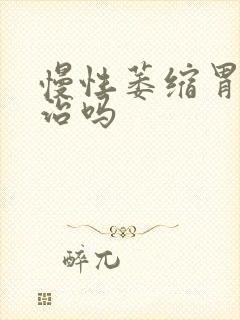 慢性萎缩胃
治吗
醉兀